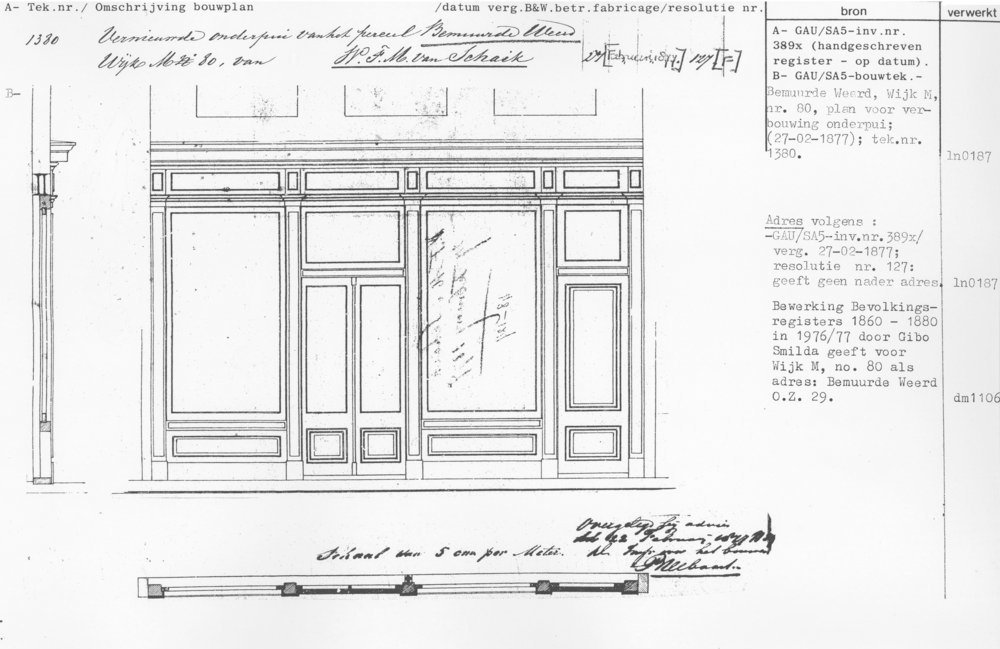 A- Tek.nr./ Omschrijving bouwplan /datum verg.B&W.betr.fabricage/resolutie nr.
bron
verwerkt
1380 Vernieuwde onderpui van het perceel Bemuurde Weerd
Wijk M № 80, van W. F. M. van Schaik 27 [Februari 1877] 127 [F]
B-
A- GAU/SA5-inv.nr.
389x (handgeschreven
register - op datum).
B- GAU/SA5-bouwtek.-
Bemuurde Weerd, Wijk M,
nr. 80, plan voor ver-
bouwing onderpui;
(27-02-1877); tek.nr.
1380.
ln0187
Adres volgens :
-GAU/SA5-inv.nr.389x/
verg. 27-02-1877;
resolutie nr. 127:
geeft geen nader adres.
ln0187
Bewerking Bevolkings-
registers 1860 - 1880
in 1976/77 door Gibo
Smilda geeft voor
Wijk M, no. 80 als
adres: Bemuurde Weerd
O.Z. 29.
dm1106
Overgelegd bij advies
dd 22 Februarij 1877
het bouwen
Schaal van 5 cm per Meter.